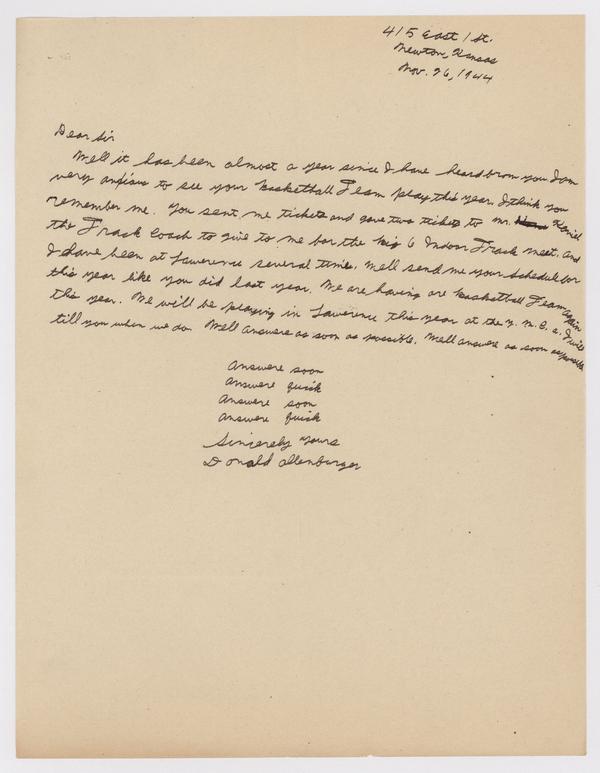 415 East 1 St.
Newton, Kansas
Nov. 26, 1944
Dear Sir
Well it has been almost a year since I have heard from you I am
very anxious to see your basketball Team play this year. I think you
remember me. You sent me tickets and gave two tickets to Mr.
the Track Coach to give to me for the big 6 Indoor Track meet, and
I have been at Lawerence several times. Well send me your Schedule for
this year like you did last year. We are having are basketball Team again
this year. We will be playing in Lawerence this year at the Y. M. C. a. I will
till you when we do. Well answere as soon as possible. Well answere as soon as possible
Answere soon
Answere quick
Answere soon
Answere quick
Sincerely yours
Donald Ollenburger